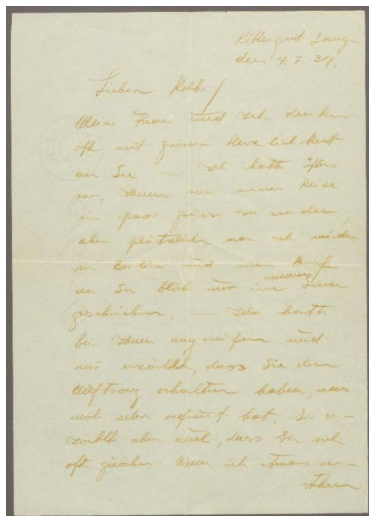 Rittergut
den 4. 7. 34.
Lieber Kolbe!
Meine Frau und ich denken
oft mit grosser Herzlichkeit
an Sie — Ich hatte öfters
vor, Ihnen von meiner Reise
ein paar Grüsse zu senden,
aber plötzlich war ich wieder
in Berlin und mein Brief
an Sie blieb nur im Innern
geschrieben. —
bei Ihnen und
mir erzählt, dass Sie den
Auftrag erhalten haben, was
mich sehr gefreut hat. Er er-
zählt aber auch, dass Sie sich
oft Wenn ich etwas